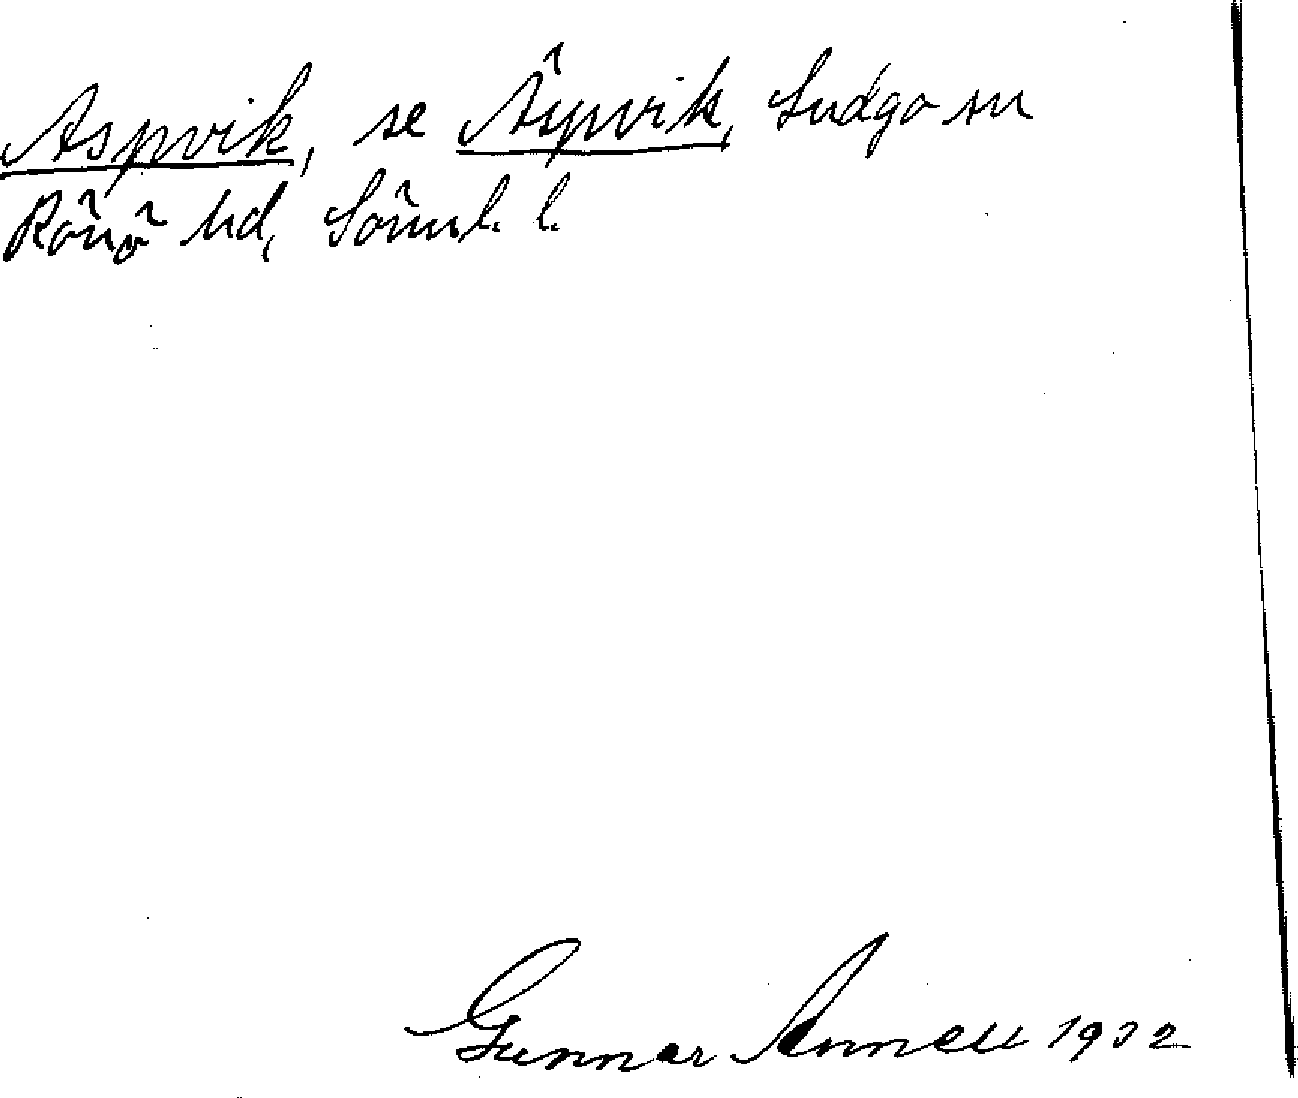 Aspvik, se Äspvik, Ludgo sn
Rönö hd, Sörml. l.
Gunnar Annell 1932